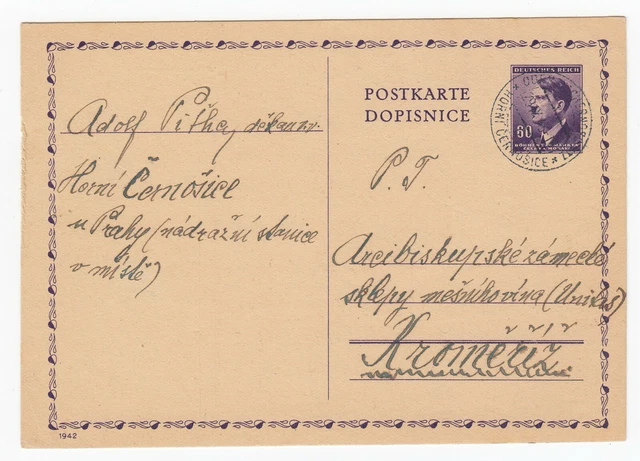 Adolf Pitha, děkan v.v.
Horní Černošice
u Prahy (nádražní stanice
v místě)
POSTKARTE
DOPISNICE
DEUTSCHES REICH
60
BÖHMEN UND MÄHREN
ČECHY A MORAVA
HORNÍ ČERNOŠICE
P. T.
Arcibiskupské zámecké
sklepy mešního vína (Unitas)
Kroměříž
1942